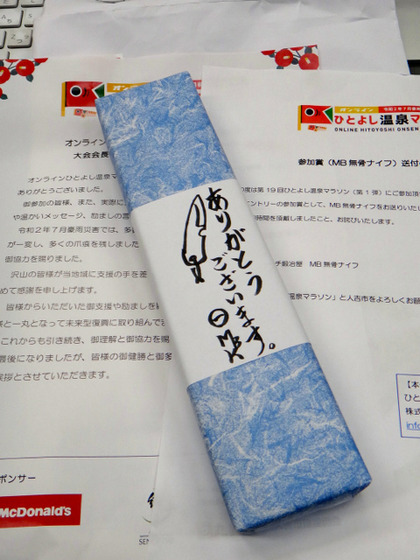 オンライン
大会会長
オンラインひとよし温泉マ
ありがとうございました。
御参加の皆様、また、実際に
や温かいメッセージ、励ましの
令和2年7月豪雨災害では、多
が一変し、多くの爪痕を残しました
御協力を賜りました。
沢山の皆様が当地域に支援の手を差
めて感謝を申し上げます。
皆様からいただいた御支援や励ましを
と一丸となって未来型復興に取り組んで
これからも引き続き、御理解と御協力を賜
最後になりましたが、皆様の御健勝と御多
挨拶とさせていただきます。
ポンサー
McDonald's
ありがとう
ございます。
オンライン
ひとよし温泉マ
ONLINE HITOYOSHI ONSEN
参加賞（MB無骨ナイフ）送付
度は第19回ひとよし温泉マラソン（第1弾）にご参加頂
エントリーの参加賞として、MB無骨ナイフをお送りいたし
時間を頂戴しましたこと、お詫びいたします。
チ鍛冶屋 MB無骨ナイフ
温泉マラソン」と人吉市をよろしくお願
【本
ひと
株式
info